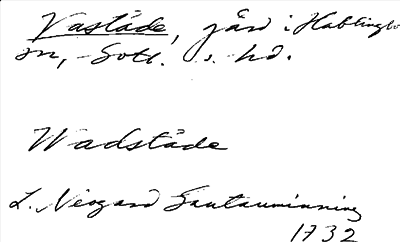 Vastäde, gård i Hablingbo
sn, Gotl. s. hd.
Wadstäde
L. Neogard Gautauminning
1732